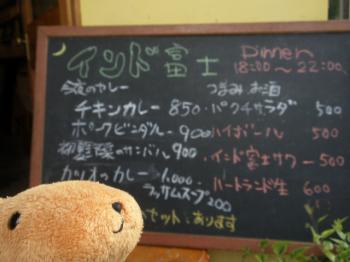 インド富士
Dinner
18:00〜22:00
今夜のカレー
つまみ お酒
チキンカレー 850
・パクチサラダ 500
ポークビンダルー 900
ハイボール 500
のサンバル 900
・インド富士サワー 500
カツオのカレー 1,000
・ハートランド生 600
ラッサムスープ 200
セット、あります